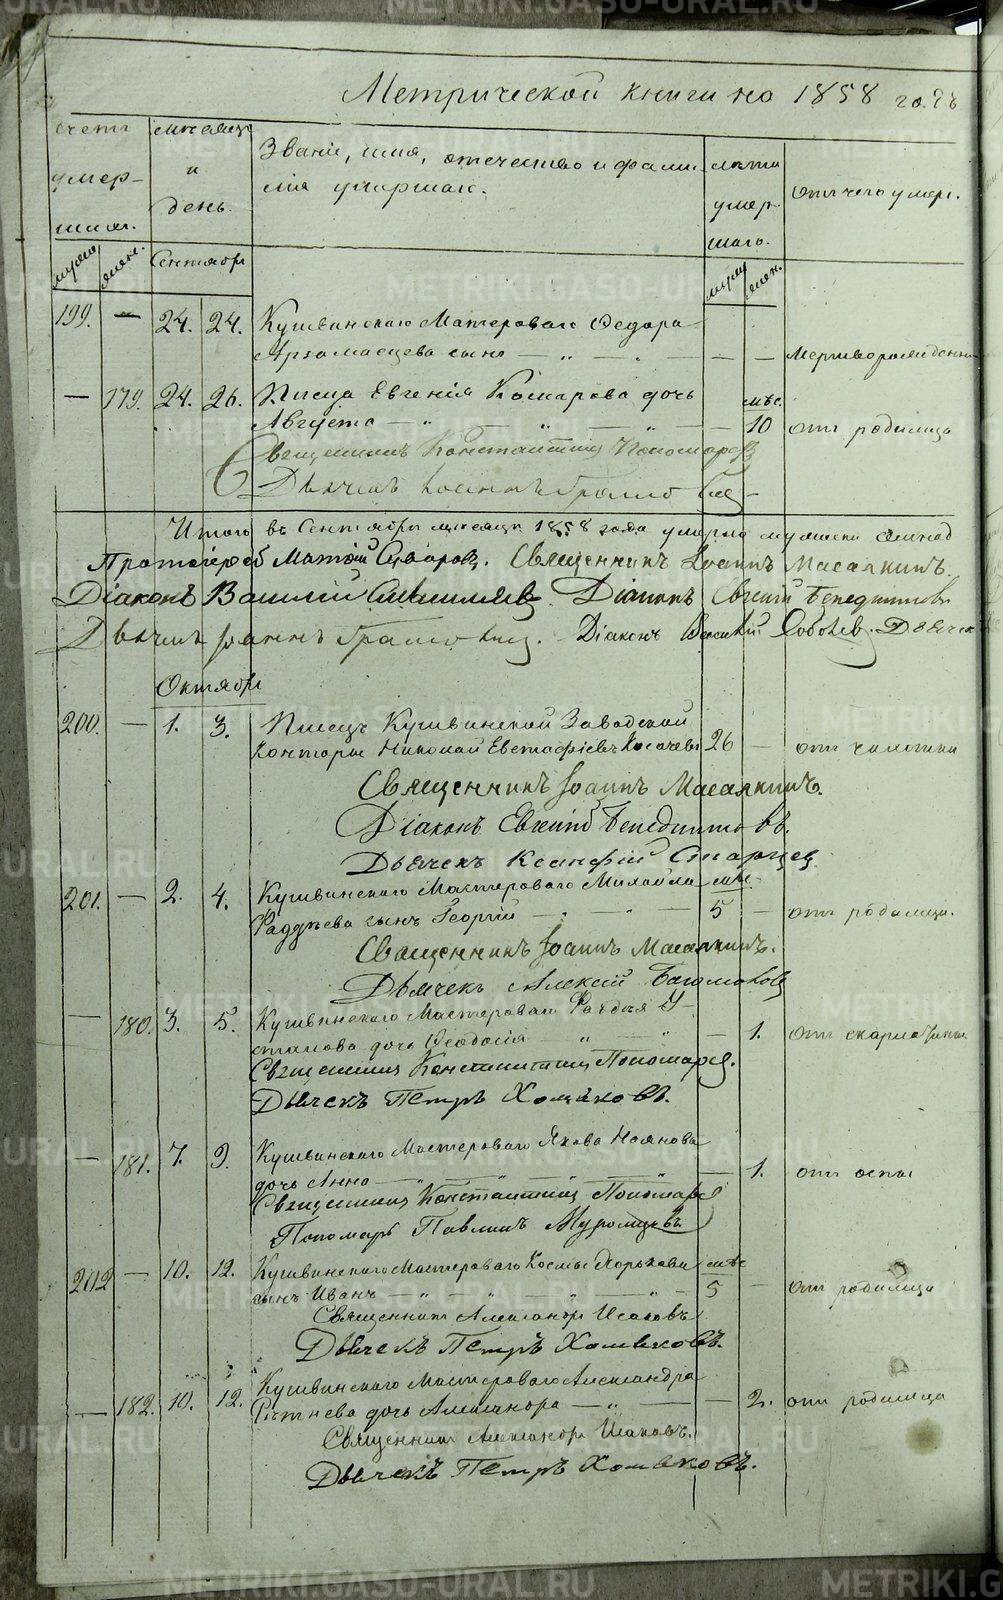 Метрической книги на 1858 годъ
счетъ умершихъ.
муж. жен.
мѣсяцъ и день.
Сентябрь
Званіе, имя, отечество и фамилія умершихъ.
лѣта умершаго.
муж. жен.
отъ чего умеръ.
199. — 24. 24. Кушвинскаго Мастероваго Федора
Арзамасцева сынъ — „ — — — мертворожденный
— 179. 24. 26. Писца Евгенія Комарова дочь мѣс.
Августа — „ — „ — — 10 отъ родимца
Священникъ Константинъ Пономаревъ
Дьячекъ Іоаннъ
Итого въ Сентябрѣ мѣсяцѣ 1858 года умерло мужеска
Протоіерей Священникъ Іоаннъ Масалкинъ.
Діаконъ Василій Діаконъ Евгеній Бенедиктовъ
Дьячекъ Іоаннъ Діаконъ Василій Соболевъ. Дьячекъ
Октябрь
200. — 1. 3. Писецъ Кушвинской Заводской
Конторы Николай Евстафіевъ 26 — отъ чахотки
Священникъ Іоаннъ Масалкинъ.
Діаконъ Евгеній Бенедиктовъ.
Дьячекъ Ксенофій Старцев
201. — 2. 4. Кушвинскаго Мастероваго Михайла мѣс.
сынъ Георгій — „ — „ — 5 — отъ родимца.
Священникъ Іоаннъ Масалкинъ.
Дьячекъ Алексій
— 180. 3. 5. Кушвинскаго Мастероваго У-
стинова дочь Ѳеодосія — „ — „ — 1. отъ скарлатины
Священникъ Константинъ Пономаревъ.
Дьячекъ Петръ Хомяковъ.
— 181. 7. 9. Кушвинскаго Мастероваго Якова
дочь Анна — „ — „ — 1. отъ оспы
Священникъ Константинъ Пономаревъ
Пономарь Павлинъ
202 — 10. 12. Кушвинскаго Мастероваго Космы Хорькова мѣс
сынъ Иванъ — „ — „ — „ — 5 — отъ родимца
Священникъ Александръ Исаковъ
Дьячекъ Петръ Хомяковъ.
— 182. 10. 12. Кушвинскаго Мастероваго Александра
дочь — „ — — 2. отъ родимца
Священникъ Александръ Исаковъ.
Дьячекъ Петръ Хомяковъ.
METRIKI.GASO-URAL.RU